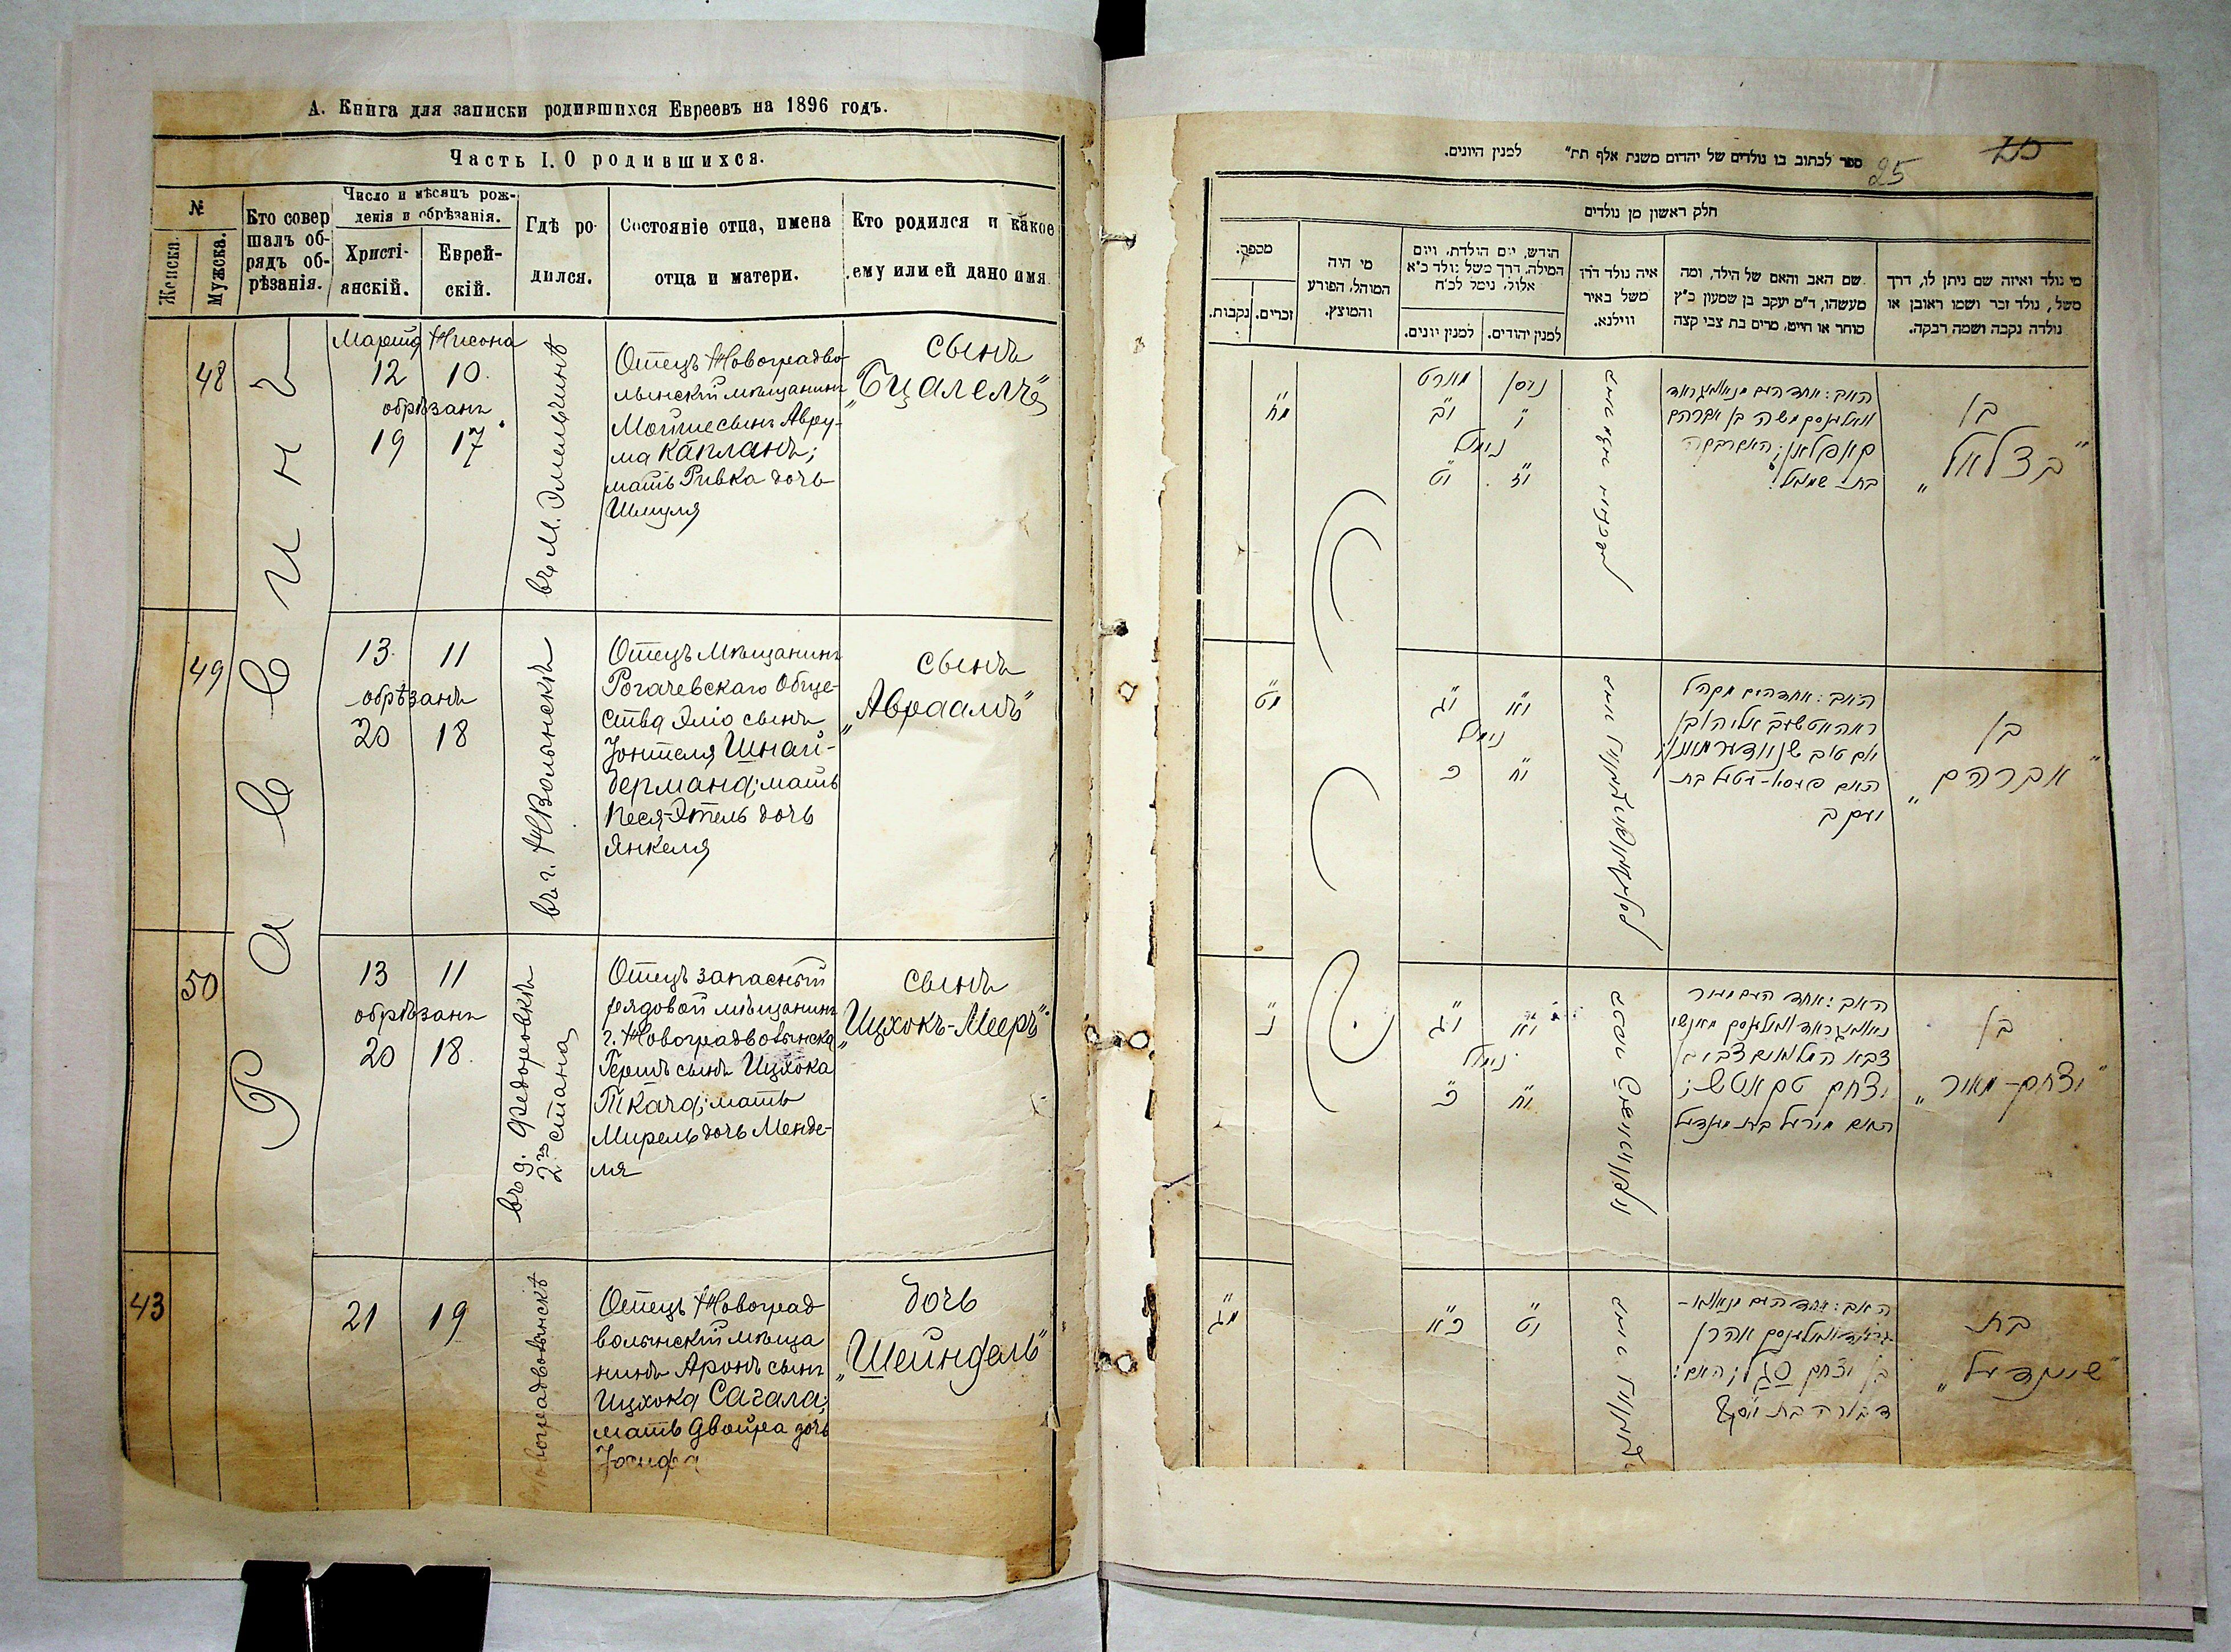 А. Книга для записки родившихся Евреевъ на 1896 годъ.
Часть I. О родившихся.
№
Женска.
Мужска.
Кто совер
шалъ об-
рядъ об-
рѣзанія.
Число и мѣсяцъ рож-
денія и обрѣзанія.
Христі-
анскій.
Еврей-
скій.
Гдѣ ро-
дился.
Состояніе отца, имена
отца и матери.
Кто родился и какое
ему или ей дано имя.
Раввинъ
48
Марта Нисона
12 10
обрѣзанъ
19 17
въ м. Эмельчинѣ
Отецъ Новоградво
лынскій мѣщанинъ
Мойше сынъ Авру-
ма Капланъ;
мать Ривка дочь
Шмуля
сынъ
"Бцалель"
49
13 11
обрѣзанъ
20 18
въ г. НВолынскѣ
Отецъ мѣщанинъ
Рогачевскаго Обще-
ства Эліо сынъ
Іонтеля Шнай-
дермана; мать
Песя-Этель дочь
Янкеля
сынъ
"Авраамъ"
50
13 11
обрѣзанъ
20 18
въ д. Федоровкѣ
2го стана
Отецъ запасный
рядовой мѣщанинъ
г. Новоградволынска
Гершъ сынъ Ицхока
Ткача; мать
Мирель дочь Менде-
ля
сынъ
"Ицхокъ-Мееръ"
43
21 19
Новоградволынскѣ
Отецъ Новоград
волынскій мѣща
нинъ Аронъ сынъ
Ицхока Сагала;
мать Двойра дочь
Іосифа
дочь
"Шейндель"
ספר לכתוב בו נולדים של יהדום משנת אלף תת" למנין היונים.
25
חלק ראשון מן נולדים
מי נולד ואיזה שם ניתן לו, דרך
משל, נולד זכר ושמו ראובן או
נולדה נקבה ושמה רבקה.
שם האב והאם של הילד, ומה
מעשהו, ד"מ יעקב בן שמעון כ"ץ
סוחר או חייט, מרים בת צבי קצה
איה נולד דרך
משל באיר
ווילנא.
חודש, יום הולדת, ויום
המילה, דרך משל נולד כ"א
אלול, נימל לכ"ח
למנין יהודים.
למנין יונים.
מי היה
המוהל, הפורע
והמוצץ.
מספר.
זכרים.
נקבות.
בן
"בצלאל"
האב: אחד
משה בן אברהם
קאפלאן; האם רבקה
בת שמואל
ניסן מארט
י יב
נימול
יז יט
מח
בן
"אברהם"
האב:
אליהו בן
יום טוב
האם פעסא-עטיל בת
יעקב
יא יג
נימול
יח כ
מט
בן
"יצחק-מאיר"
האב: אחד
צבי בן
יצחק טקאטש;
האם מירעל בת מענדעל
יא יג
נימול
יח כ
נ
בת
"שיינדעל"
האב: אחד
אהרן
בן יצחק סגל; האם:
דבורה בת יוסף
יט כא
מג